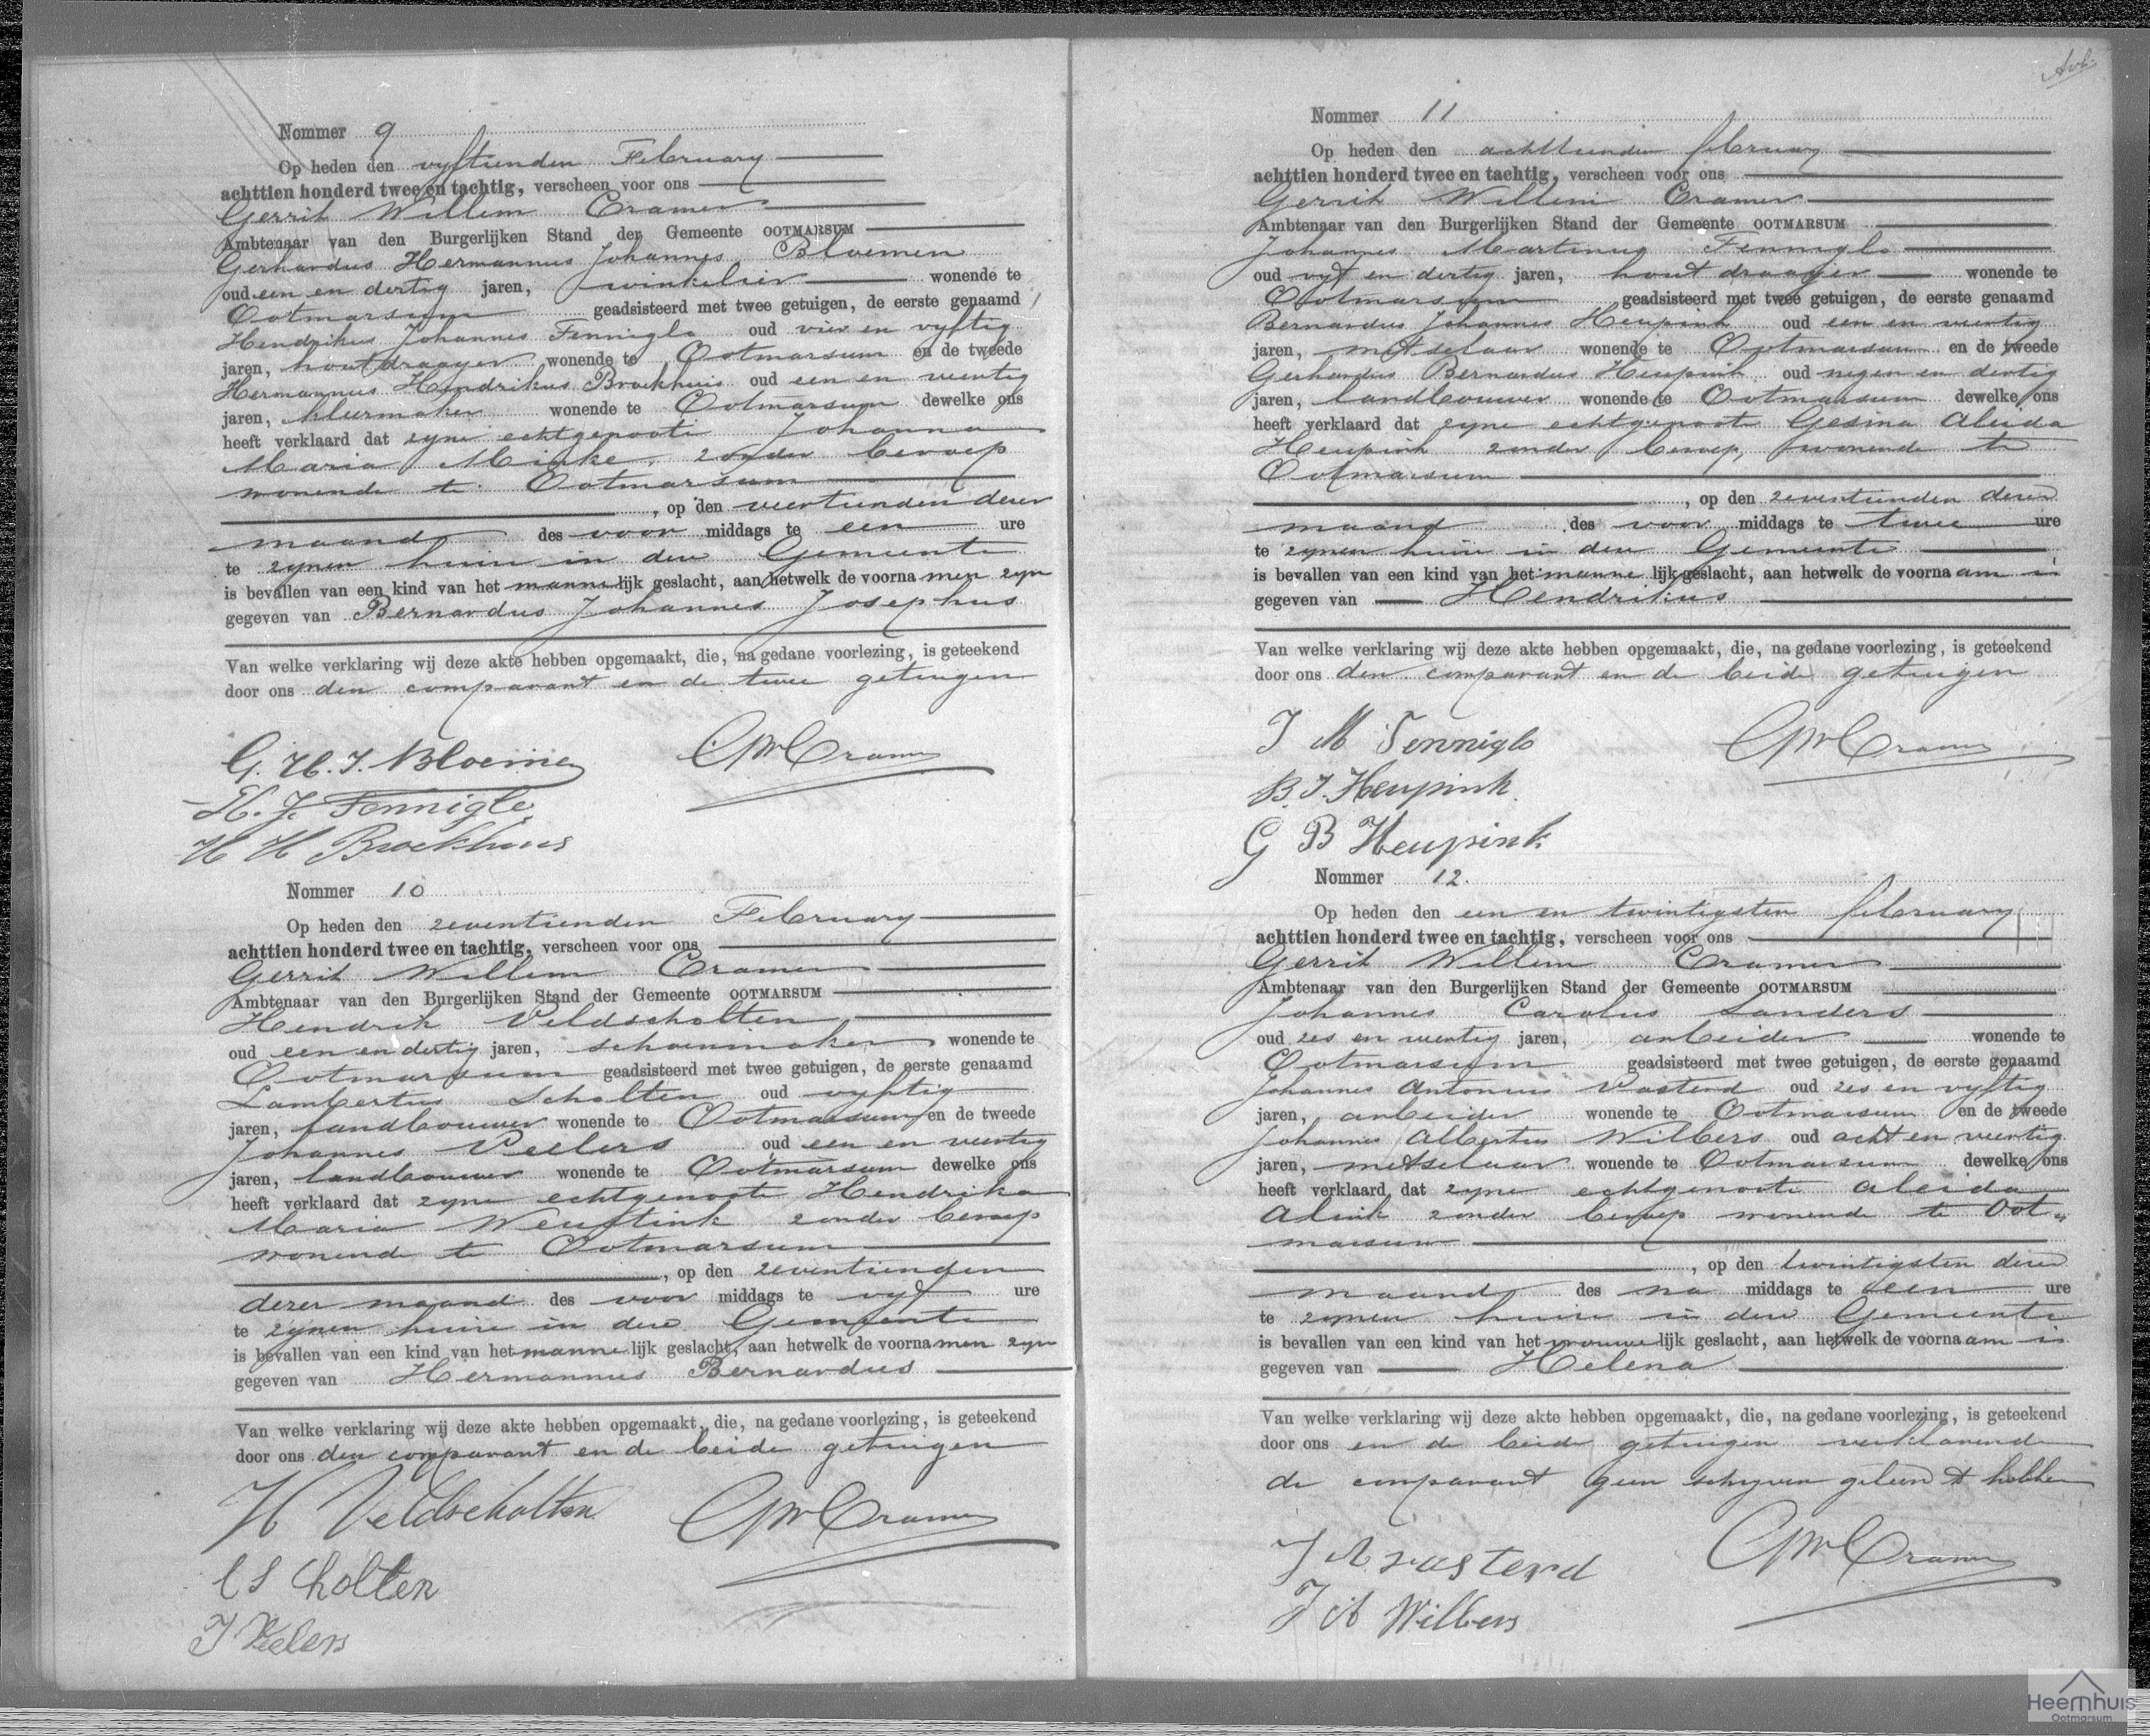 Nommer 9
Op heden den vyftienden February
achttien honderd twee en tachtig, verscheen voor ons
Gerrit Willem Cramer
Ambtenaar van den Burgerlijken Stand der Gemeente OOTMARSUM
Gerhardus Hermannus Johannes Bloemen
oud een en dertig jaren, winkelier wonende te
Ootmarsum geadsisteerd met twee getuigen, de eerste genaamd
Hendrikus Johannes Fenniglo oud vier en vyftig
jaren, houtdraayer wonende te Ootmarsum en de tweede
Hermannus Hendrikus Broekhuis oud een en veertig
jaren, kleermaker wonende te Ootmarsum dewelke ons
heeft verklaard dat zyne echtgenoote Johanna
Maria Minke, zonder beroep
wonende te Ootmarsum
, op den veertienden dezer
maand des voor middags te een ure
te zynen huize in deze Gemeente
is bevallen van een kind van het manne lijk geslacht, aan hetwelk de voorna men zyn
gegeven van Bernardus Johannes Josephus
Van welke verklaring wij deze akte hebben opgemaakt, die, na gedane voorlezing, is geteekend
door ons den comparant en de twee getuigen
G. H. J. Bloemen GWCramer
H. J. Fenniglo
H H Broekhuis
Nommer 10
Op heden den zeventienden February
achttien honderd twee en tachtig, verscheen voor ons
Gerrit Willem Cramer
Ambtenaar van den Burgerlijken Stand der Gemeente OOTMARSUM
Hendrik Veldscholten
oud een en dertig jaren, schoenmaker wonende te
Ootmarsum geadsisteerd met twee getuigen, de eerste genaamd
Lambertus Scholten oud vyftig
jaren, landbouwer wonende te Ootmarsum en de tweede
Johannes Veelers oud een en veertig
jaren, landbouwer wonende te Ootmarsum dewelke ons
heeft verklaard dat zyne echtgenoote Hendrika
Maria Weustink zonder beroep
wonende te Ootmarsum
, op den zeventienden
dezer maand des voor middags te vyf ure
te zynen huize in deze Gemeente
is bevallen van een kind van het manne lijk geslacht, aan hetwelk de voorna men zyn
gegeven van Hermannus Bernardus
Van welke verklaring wij deze akte hebben opgemaakt, die, na gedane voorlezing, is geteekend
door ons den comparant en de beide getuigen
H Veldscholten GWCramer
L Scholten
J Veelers
Nommer 11
Op heden den achttienden february
achttien honderd twee en tachtig, verscheen voor ons
Gerrit Willem Cramer
Ambtenaar van den Burgerlijken Stand der Gemeente OOTMARSUM
Johannes Martinus Fenniglo
oud vyf en dertig jaren, houtdraayer wonende te
Ootmarsum geadsisteerd met twee getuigen, de eerste genaamd
Bernardus Johannes Heupink oud een en veertig
jaren, metselaar wonende te Ootmarsum en de tweede
Gerhardus Bernardus Heupink oud negen en dertig
jaren, landbouwer wonende te Ootmarsum dewelke ons
heeft verklaard dat zyne echtgenoote Gesina Aleida
Heupink zonder beroep, wonende te
Ootmarsum
, op den zeventienden dezer
maand des voor middags te twee ure
te zynen huize in deze Gemeente
is bevallen van een kind van het manne lijk geslacht, aan hetwelk de voorna am is
gegeven van Hendrikus
Van welke verklaring wij deze akte hebben opgemaakt, die, na gedane voorlezing, is geteekend
door ons den comparant en de beide getuigen
J M Fenniglo GWCramer
B. J. Heupink
G B Heupink
Nommer 12.
Op heden den een en twintigsten february
achttien honderd twee en tachtig, verscheen voor ons
Gerrit Willem Cramer
Ambtenaar van den Burgerlijken Stand der Gemeente OOTMARSUM
Johannes Carolus Sanders
oud zes en veertig jaren, arbeider wonende te
Ootmarsum geadsisteerd met twee getuigen, de eerste genaamd
Johannes Antonius Vastend oud zes en vyftig
jaren, arbeider wonende te Ootmarsum en de tweede
Johannes Albertus Wilbers oud acht en veertig
jaren, metselaar wonende te Ootmarsum dewelke ons
heeft verklaard dat zyne echtgenoote Aleida
Alink zonder beroep wonende te Oot„
marsum
, op den twintigsten dezer
maand des na middags te een ure
te zynen huize in deze Gemeente
is bevallen van een kind van het vrouwe lijk geslacht, aan hetwelk de voorna am is
gegeven van Helena
Van welke verklaring wij deze akte hebben opgemaakt, die, na gedane voorlezing, is geteekend
door ons en de beide getuigen verklarende
de comparant geen schryven geleerd te hebben
J A Vastend GWCramer
J A Wilbers
Heemhuis
Ootmarsum